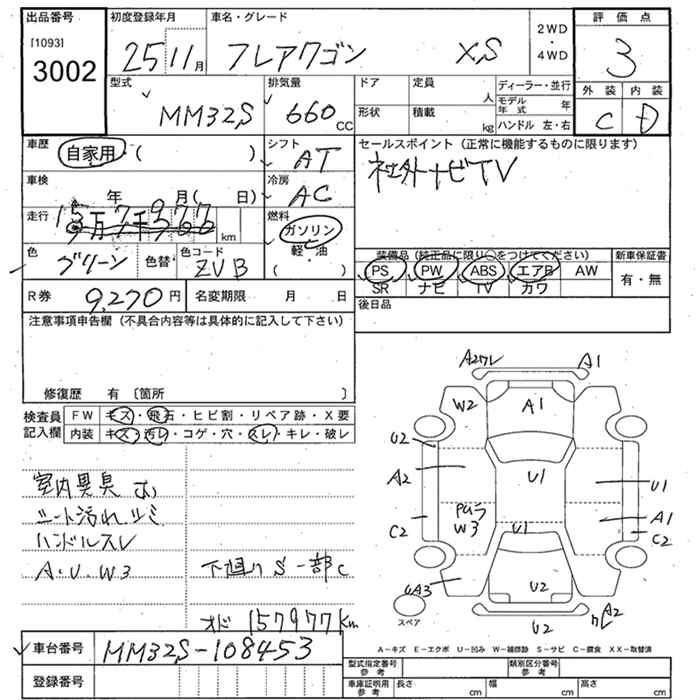 出品番号 初度登録年月 車名・グレード 2WD 評価点
[1093] 3002 25 11月 フレアワゴン XS ・4WD 3
型式 排気量 ドア 定員 人 ディーラー・並行 外装 内装
MM32S 660 CC 形状 積載 kg モデル年式 年 C D
ハンドル 左・右
車歴 自家用・( ) シフト AT セールスポイント (正常に機能するものに限ります)
車検 年 月( 日) 冷房 AC 社外ナビTV
走行 15万7千977 km 燃料 ガソリン
軽・油
( )
色 グリーン 色替 色コード ZVB
装備品(純正品に限り○をつけてください) 新車保証書
PS PW ABS エアB AW 有・無
SR ナビ TV カワ
R券 9,270円 名変期限 月 日 後日品
注意事項申告欄(不具合内容等は具体的に記入して下さい)
修復歴 有 〔箇所 〕
検査員記入欄 FW キズ・飛石・ヒビ割・リペア跡・X要
内装 キズ・汚レ・コゲ・穴・スレ・キレ・破レ
室内異臭
シート汚れ シミ
ハンドルスレ
A・U・W3 下廻り S 一部C
オド 157977km
A2ワレ A1
W2 A1
U2
A2 U1 U1
PUラ
W3 U1 A1
C2 C2
UA3 U2 A2
U2
スペア
A-キズ E-エクボ U-凹み W-補修跡 S-サビ C-腐食 XX-取替済
車台番号 MM32S-108453
登録番号
型式指定番号 参考 類別区分番号 参考
車庫証明用 参考 長さ cm 幅 cm 高さ cm